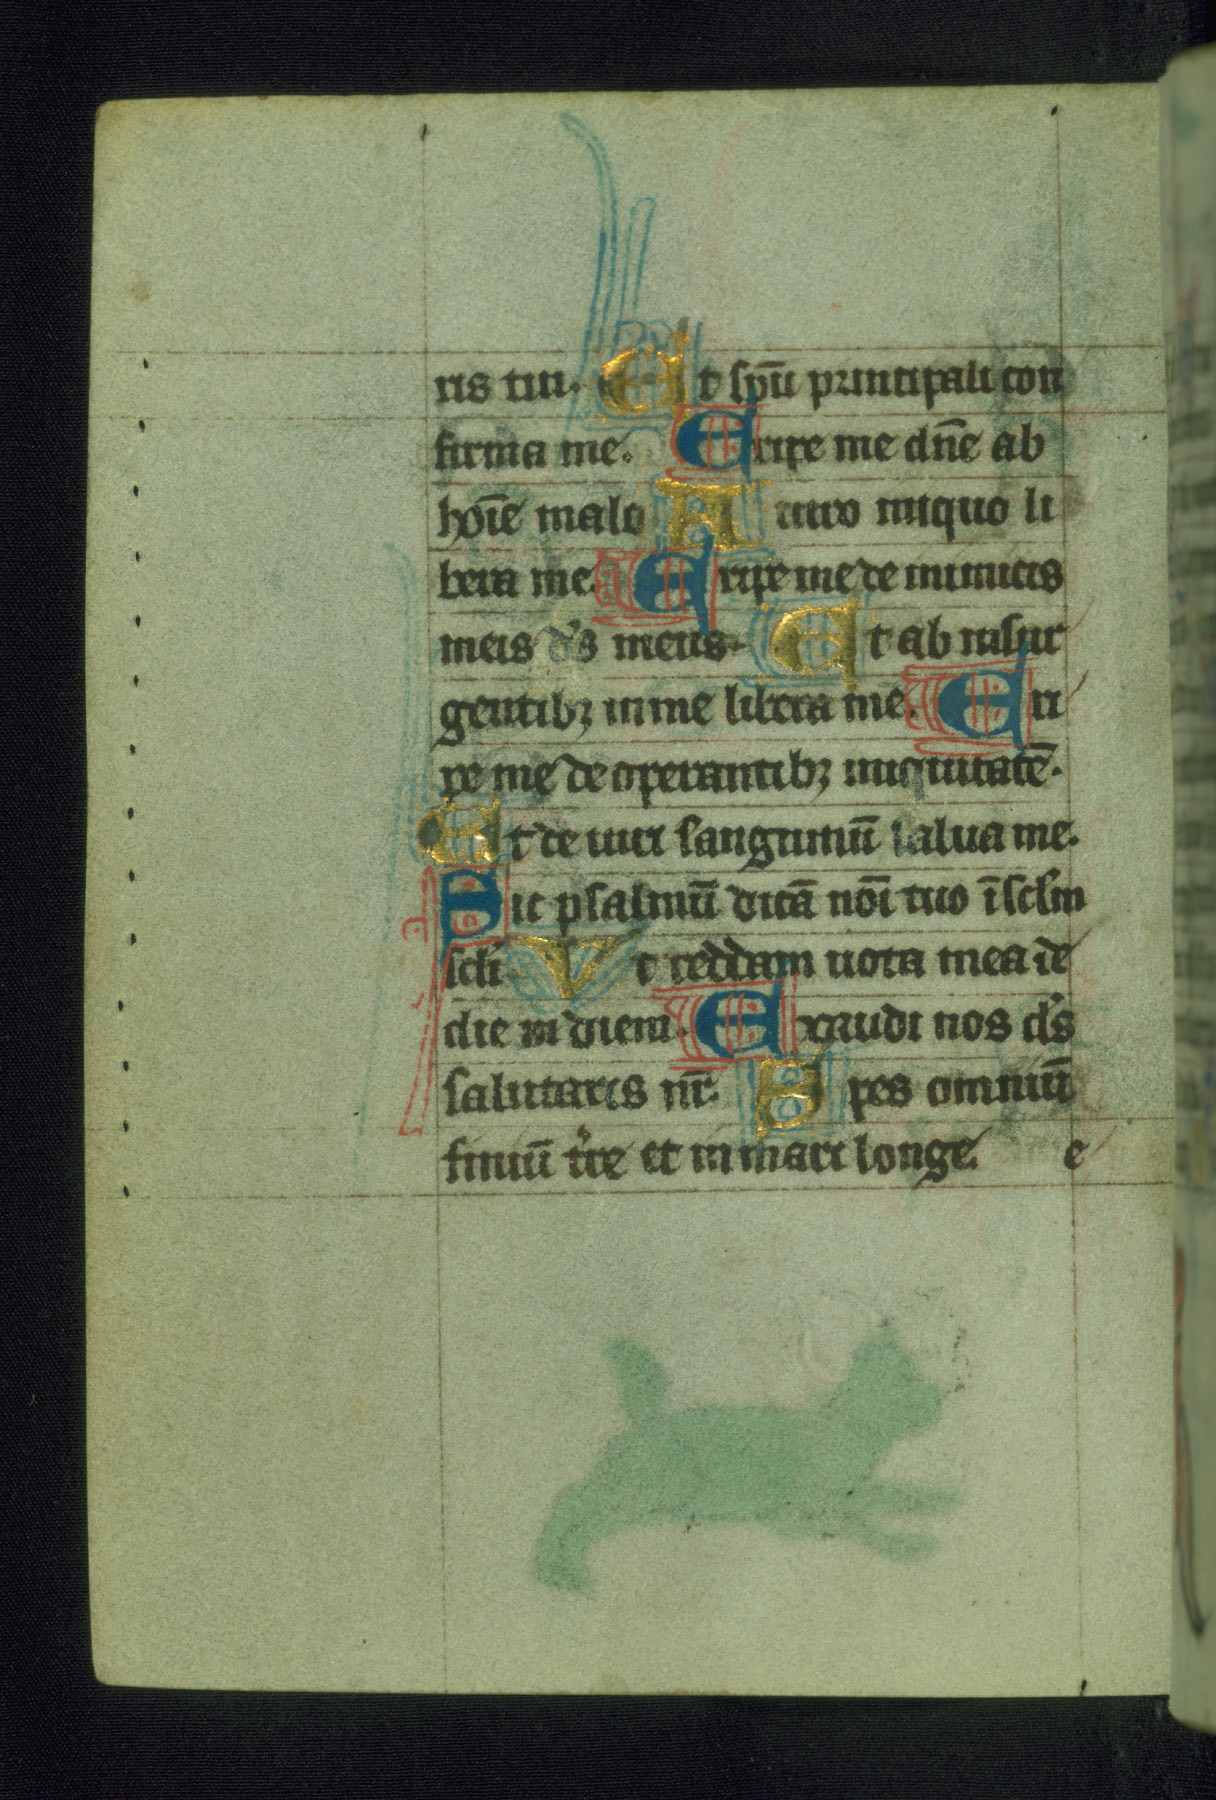 ris tui. Et sp̄u principali con
firma me. Eripe me dn̄e ab
hoīe malo A uiro iniquo li
bera me. Eripe me de inimicis
meis ds̄ meus. Et ab insur
gentibꝫ in me libera me. Eri
pe me de operantibꝫ iniquitatē.
Et de uiri sanguinū salua me.
Sic psalmū dicā noī tuo ī sclm̄
scli Vt reddam uota mea de
die in diem. Exaudi nos ds̄
salutaris nr̄. Spes omniū
finiū tr̄e et in mari longe. e